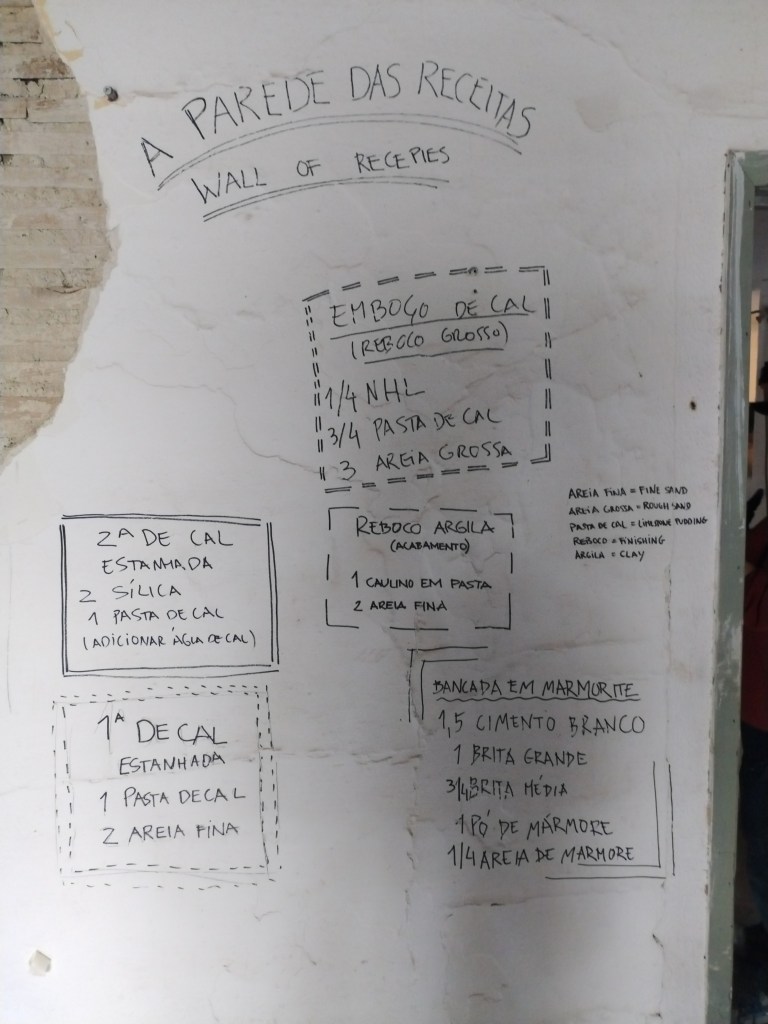 A PAREDE DAS RECEITAS
WALL OF RECEPIES
EMBOÇO DE CAL
(REBOCO GROSSO)
1/4 NHL
3/4 PASTA DE CAL
3 AREIA GROSSA
AREIA FINA = FINE SAND
AREIA GROSSA = ROUGH SAND
PASTA DE CAL = LIMESTONE PUDDING
REBOCO = FINISHING
ARGILA = CLAY
REBOCO ARGILA
(ACABAMENTO)
1 CAULINO EM PASTA
2 AREIA FINA
2ª DE CAL
ESTANHADA
2 SÍLICA
1 PASTA DE CAL
(ADICIONAR ÁGUA DE CAL)
1ª DE CAL
ESTANHADA
1 PASTA DE CAL
2 AREIA FINA
BANCADA EM MARMORITE
1,5 CIMENTO BRANCO
1 BRITA GRANDE
3/4 BRITA MÉDIA
1 PÓ DE MÁRMORE
1/4 AREIA DE MARMORE